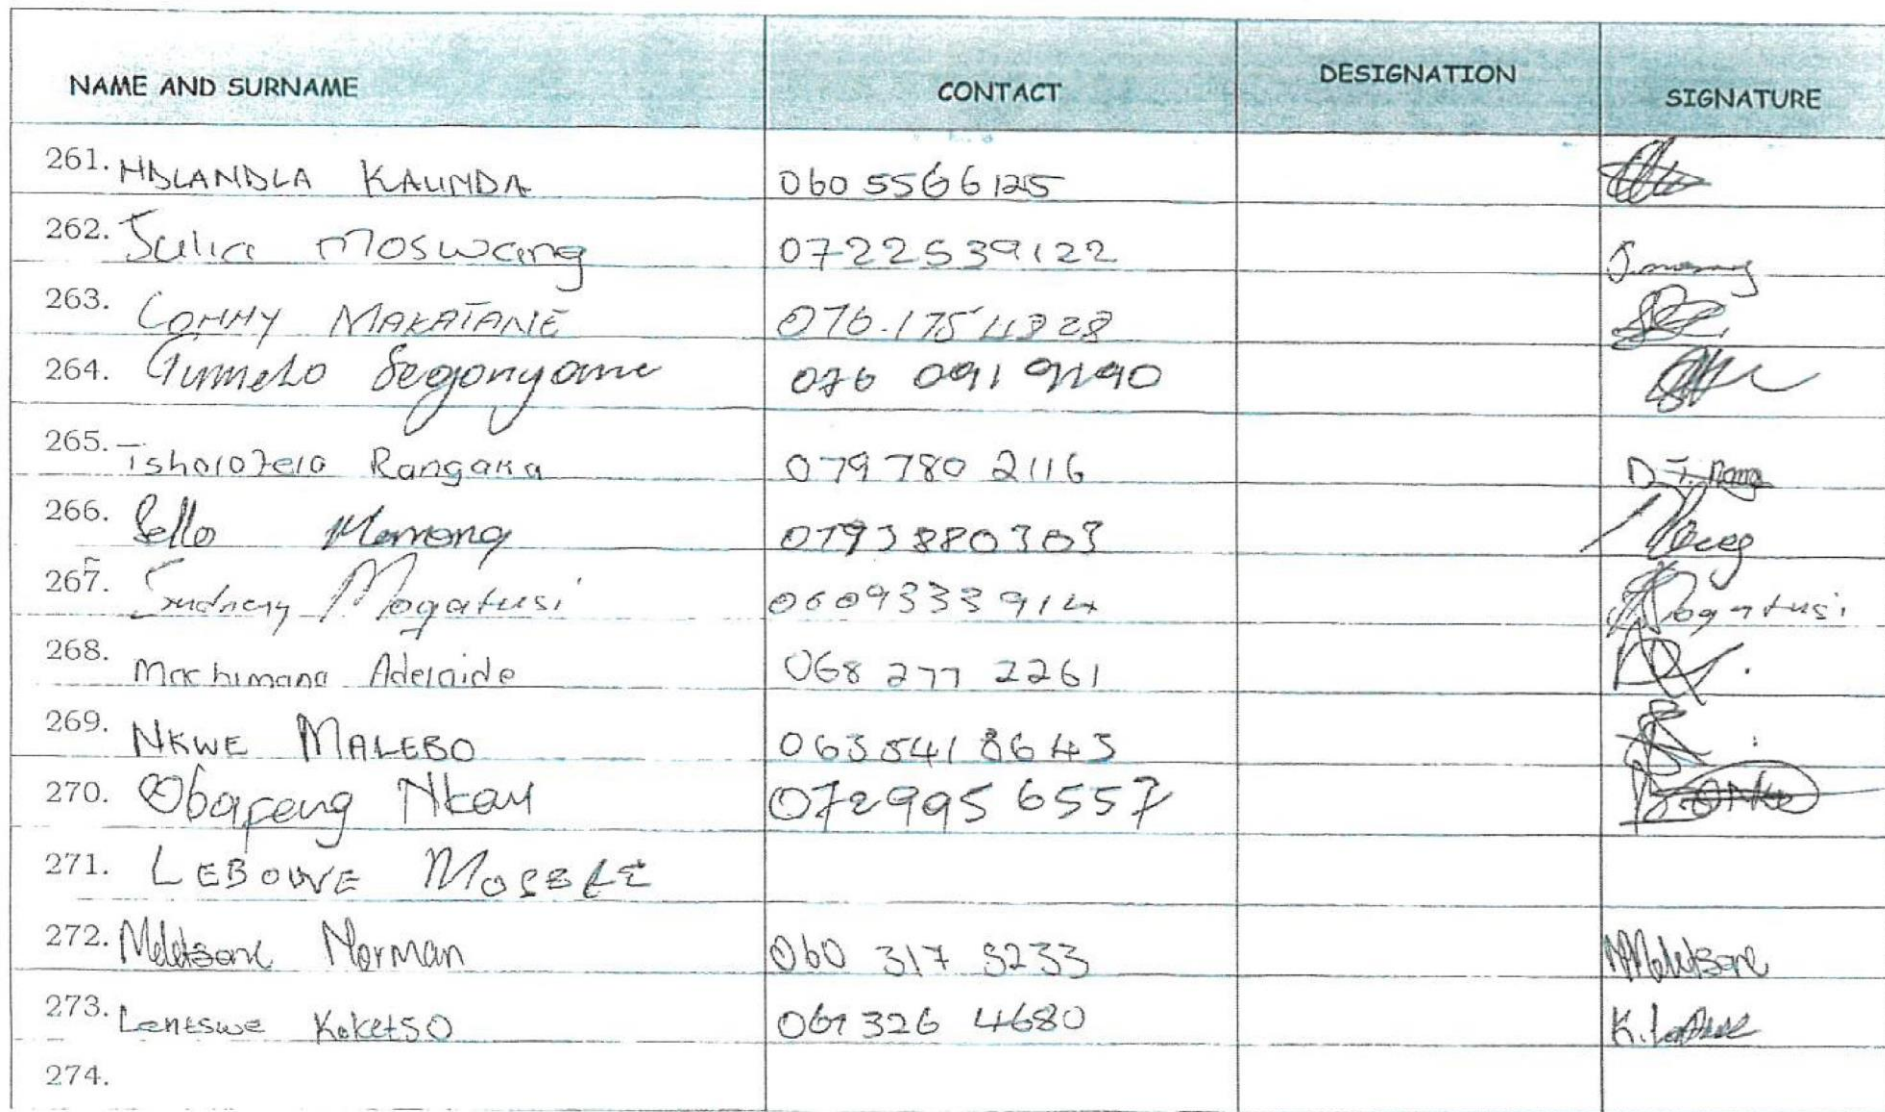 NAME AND SURNAME CONTACT DESIGNATION SIGNATURE
261. HDLANDLA KAUNDA 060 5566125
262. Julia Moswang 0722539122
263. COMMY MAKATANE 076.1754828
264. Tumelo Segonyane 076 091
265. Tsholofelo Rangaka 079 780 2116
266. Sello Mamong 0793880303
267. Sudney Mogatusi 0609333914 Mogatusi
268. Machimana Adelaide 068 277 2261
269. NKWE MALEBO 0635418643
270. Obapeng Nkau 072995 6557
271. LEBOWE
272. Meletsane Norman 060 317 3233 Meletsane
273. Lentswe Koketso 326 4680
274.